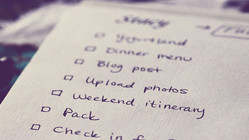 Yogurtland
Dinner menu
Blog post
Upload photos
Weekend itinerary
Pack
Check in f